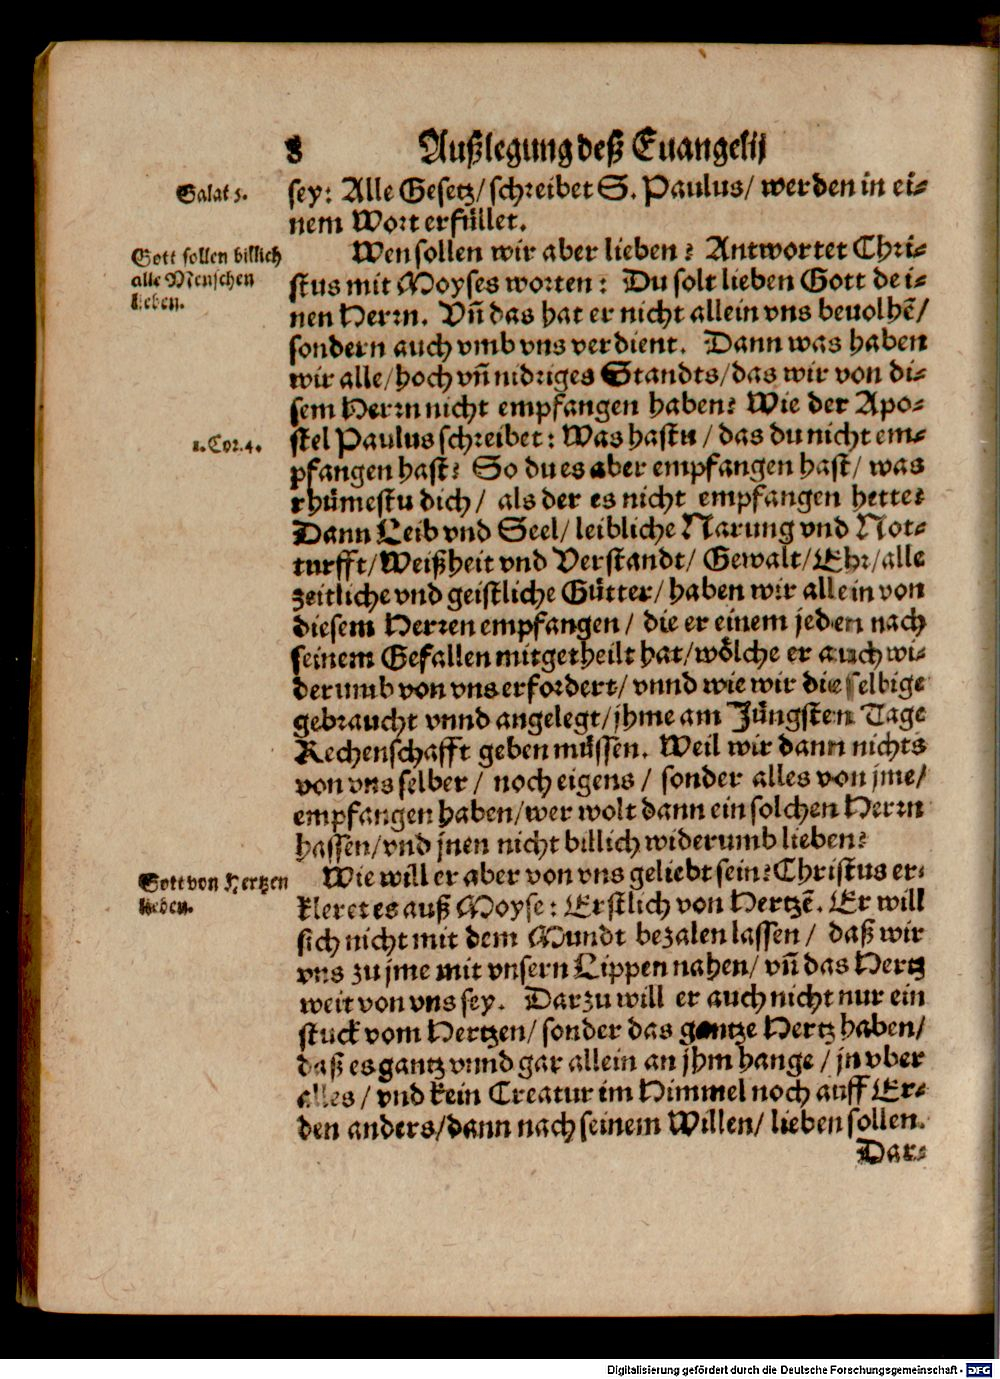 8 Außlegung deß Euangelij
Galat 5.
sey: Alle Gesetz/ schreibet S. Paulus/ werden in ei-
nem Wort erfüllet.
Gott sollen billich
alle Menschen
lieben.
Wen sollen wir aber lieben? Antwortet Chri-
stus mit Moyses worten: Du solt lieben Gott dei-
nen Herrn. Vñ das hat er nicht allein vns beuolhẽ/
sondern auch vmb vns verdient. Dann was haben
wir alle/ hoch vñ nidriges Standts/ das wir von di-
sem Herrn nicht empfangen haben? Wie der Apo-
1. Cor. 4.
stel Paulus schreibet: Was hastu/ das du nicht em-
pfangen hast? So du es aber empfangen hast/ was
rhůmestu dich/ als der es nicht empfangen hette?
Dann Leib vnd Seel/ leibliche Narung vnd Not-
turfft/ Weißheit vnd Verstandt/ Gewalt/ Ehr/ alle
zeitliche vnd geistliche Gůtter/ haben wir allein von
diesem Herren empfangen/ die er einem jeden nach
seinem Gefallen mitgetheilt hat/ wőlche er auch wi-
derumb von vns erfordert/ vnnd wie wir die selbige
gebraucht vnnd angelegt/ jhme am Jůngsten Tage
Rechenschafft geben můssen. Weil wir dann nichts
von vns selber/ noch eigens/ sonder alles von jme/
empfangen haben/ wer wolt dann ein solchen Herrn
hassen/ vnd jnen nicht billich widerumb lieben?
Gott von Hertzen
lieben.
Wie will er aber von vns geliebt sein? Christus er-
kleret es auß Moyse: Erstlich von Hertzẽ. Er will
sich nicht mit dem Mundt bezalen lassen/ daß wir
vns zu jme mit vnsern Lippen nahen/ vñ das Hertz
weit von vns sey. Darzu will er auch nicht nur ein
stuck vom Hertzen/ sonder das gantze Hertz haben/
daß es gantz vnnd gar allein an jhm hange/ jn vber
alles/ vnd kein Creatur im Himmel noch auff Er-
den anders/ dann nach seinem Willen/ lieben sollen.
Dar-
Digitalisierung gefördert durch die Deutsche Forschungsgemeinschaft - DFG